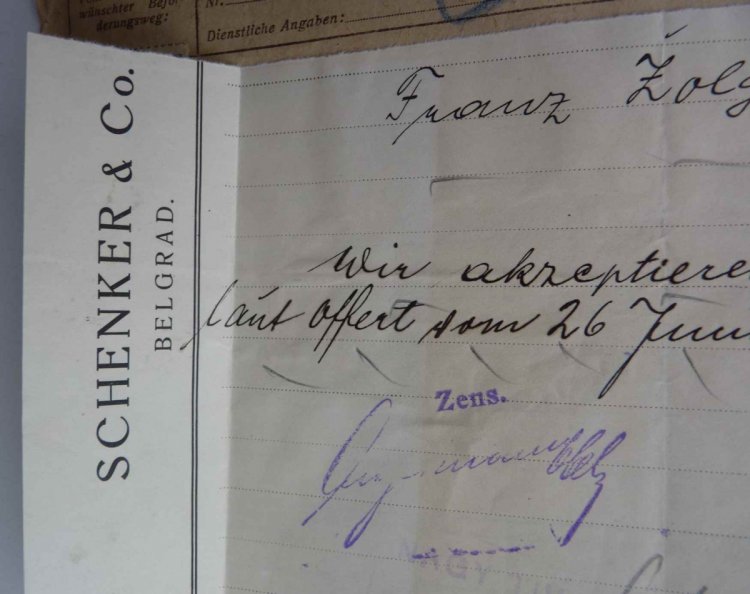 wünschter Beför-
derungsweg:
Nr.
Dienstliche Angaben:
SCHENKER & Co.
BELGRAD.
Franz Zolg
Wir akzeptiere
laut Offert vom 26 Juni
Zens.